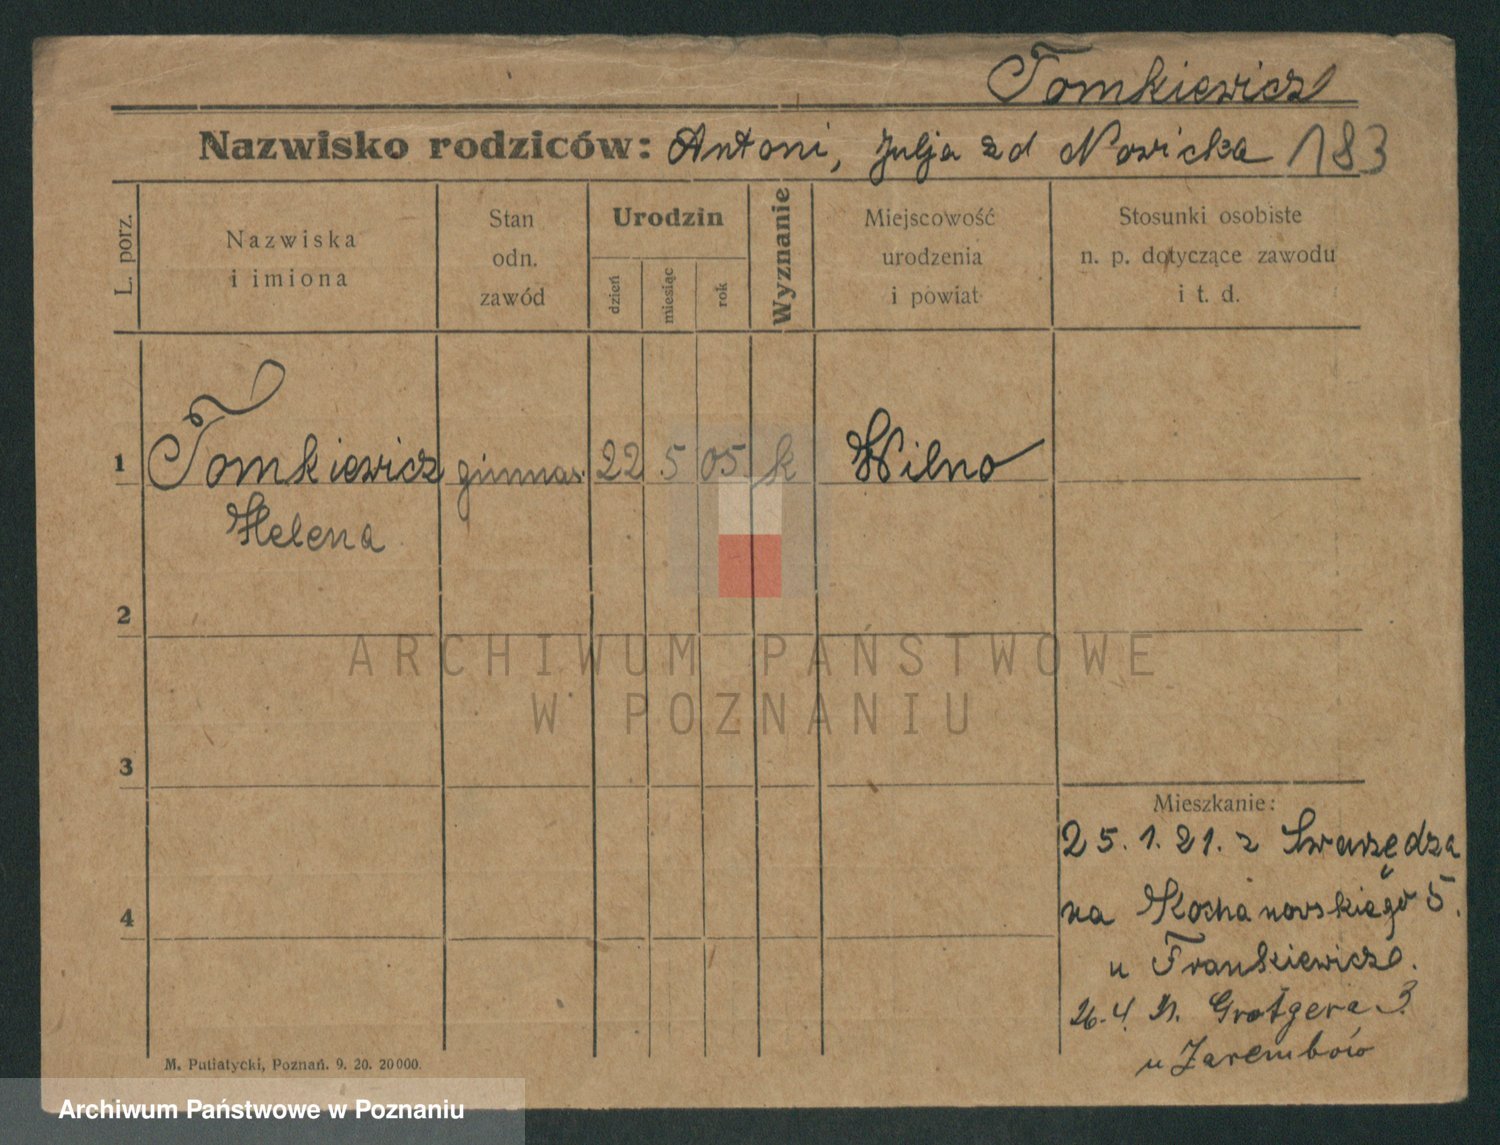 Tomkiewicz
Nazwisko rodziców: Antoni, Julja zd Nowicka 183
L. porz.
Nazwiska
i imiona
Stan
odn.
zawód
Urodzin
dzień
miesiąc
rok
Wyznanie
Miejscowość
urodzenia
i powiat
Stosunki osobiste
n. p. dotyczące zawodu
i t. d.
1 Tomkiewicz gimnas. 22 5 05 k Wilno
Helena
2
ARCHIWUM PAŃSTWOWE
W POZNANIU
3
Mieszkanie:
25. 1. 21. z Swarzędza
4
na Kochanowskiego 5.
u Frankiewicz.
26. 4. 21. Grotgera 3
u Zarembów
M. Putiatycki, Poznań. 9. 20. 20000.
Archiwum Państwowe w Poznaniu